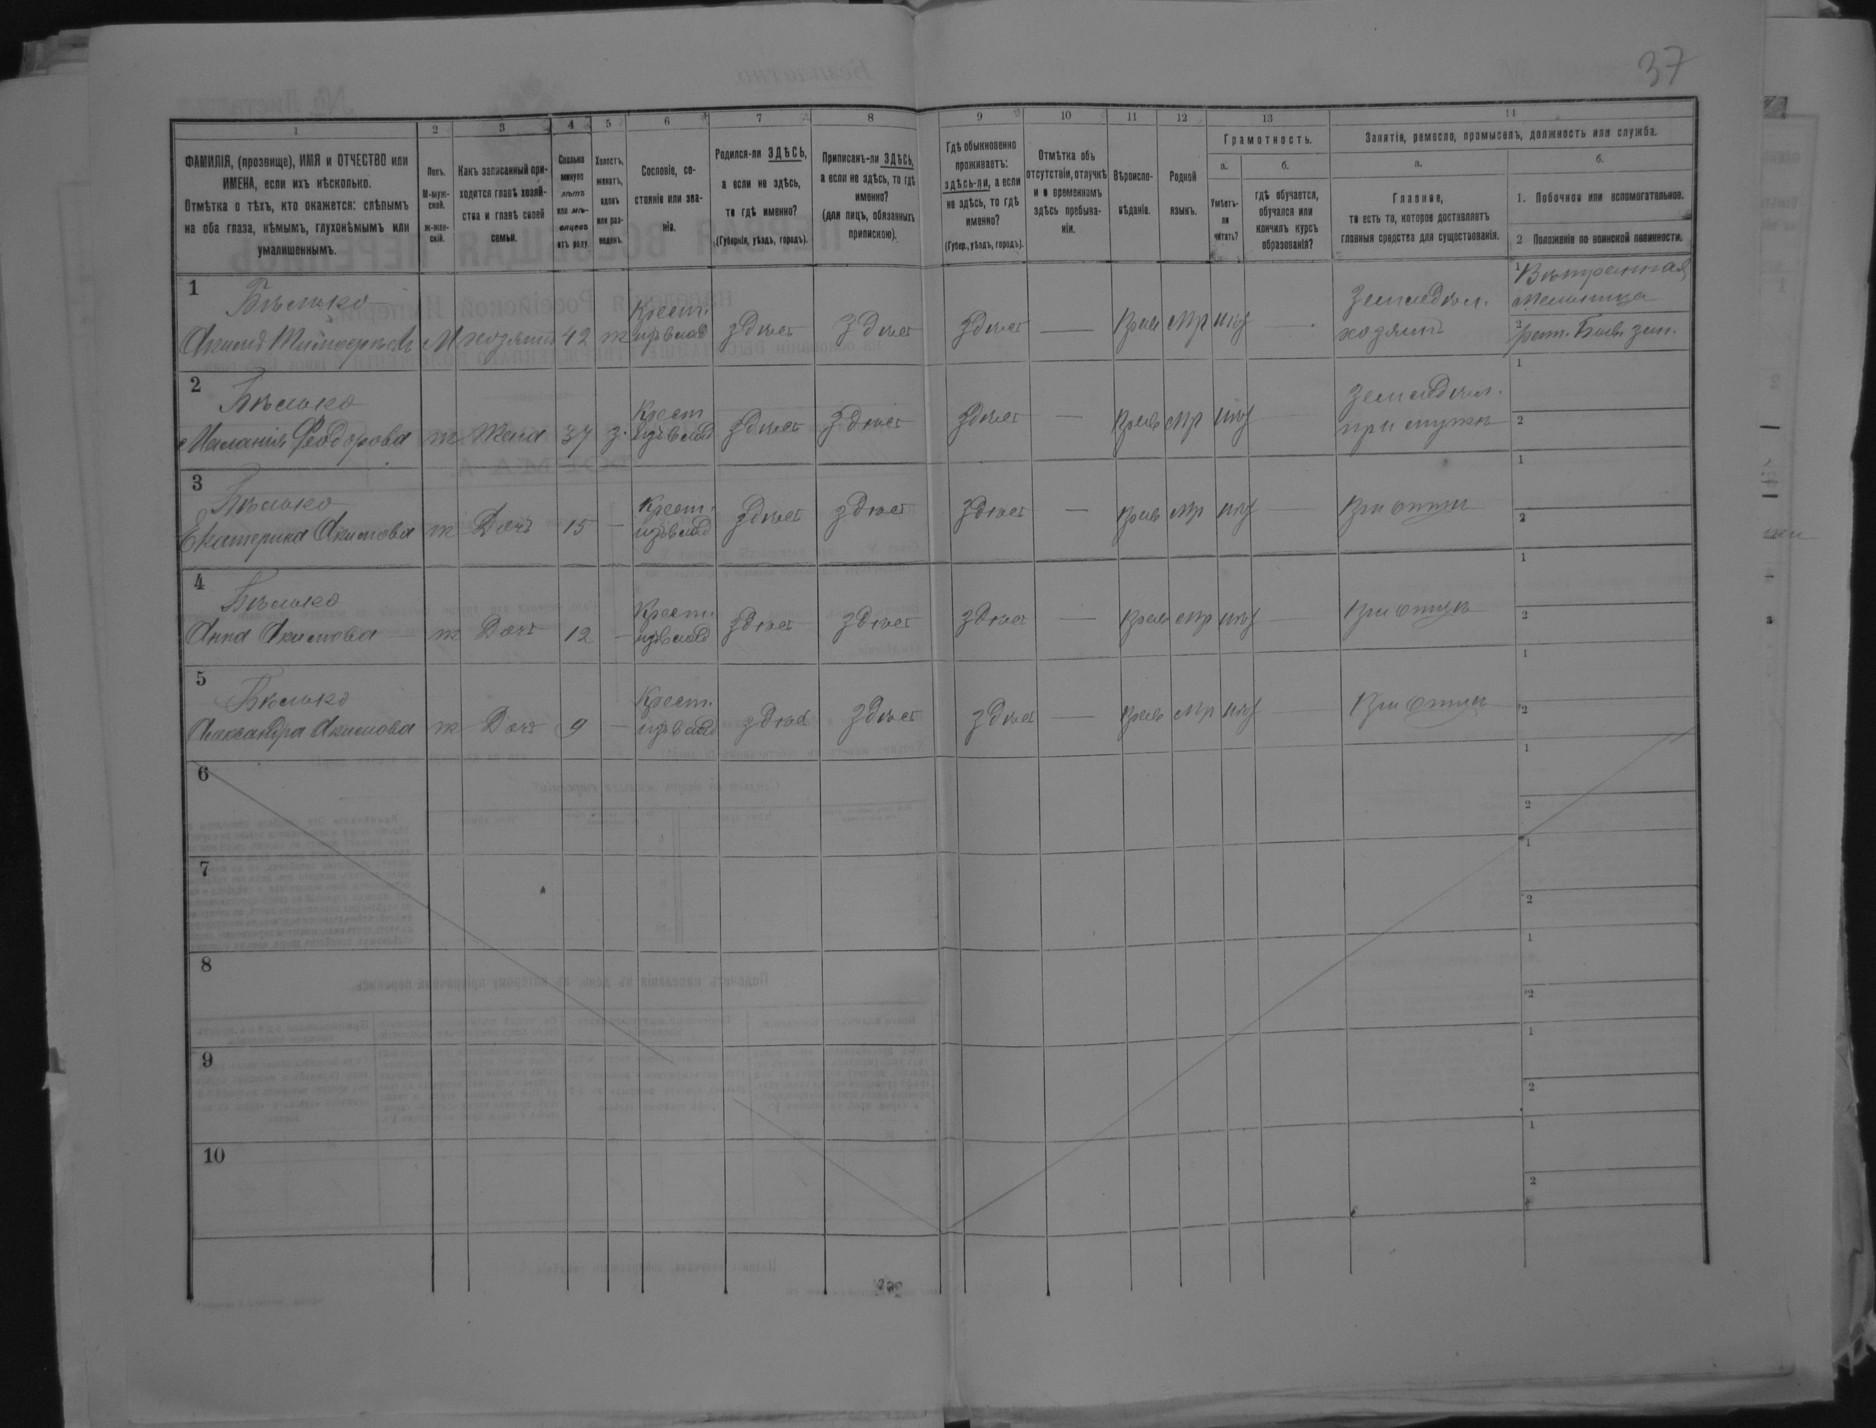 37
1 2 3 4 5 6 7 8 9 10 11 12 13 14
ФАМИЛІЯ, (прозвище), ИМЯ и ОТЧЕСТВО или
ИМЕНА, если ихъ нѣсколько.
Отмѣтка о тѣхъ, кто окажется: слѣпымъ
на оба глаза, нѣмымъ, глухонѣмымъ или
умалишеннымъ.
Полъ.
М-муж-
ской.
ж-жен-
скій.
Какъ записанный при-
ходится главѣ хозяй-
ства и главѣ своей
семьи.
Сколько
минуло
лѣтъ
или мѣ-
сяцевъ
отъ роду.
Холостъ,
женатъ,
вдовъ
или раз-
веденъ.
Сословіе, со-
стояніе или зва-
ніе.
Родился-ли ЗДѢСЬ,
а если не здѣсь,
то гдѣ именно?
(Губернія, уѣздъ, городъ).
Приписанъ-ли ЗДѢСЬ,
а если не здѣсь, то гдѣ
именно?
(для лицъ, обязанныхъ
припискою).
Гдѣ обыкновенно
проживаетъ:
здѣсь-ли, а если
не здѣсь, то гдѣ
именно?
(Губер., уѣздъ, городъ).
Отмѣтка объ
отсутствіи, отлучкѣ
и о временномъ
здѣсь пребыва-
ніи.
Вѣроиспо-
вѣданіе.
Родной
языкъ.
Грамотность.
а.
Умѣетъ-
ли
читать?
б.
гдѣ обучается,
обучался или
кончилъ курсъ
образованія?
Занятія, ремесло, промыселъ, должность или служба.
а.
Главное,
то есть то, которое доставляетъ
главныя средства для существованія.
б.
1. Побочное или вспомогательное.
2 Положеніе по воинской повинности.
1
Бѣлько
Акимъ М хозяинъ 42 ж Крест.
изъ влад здѣсь здѣсь здѣсь — Прав мр нѣт — Земледѣл.
хозяинъ
1 Вѣтряная
мельница
2
2
Бѣлько
Маланія Феодорова ж Жена 37 з. Крест
изъ влад здѣсь здѣсь здѣсь — Прав мр нѣт — Земледѣл.
при мужѣ
1
2
3
Бѣлько
Екатерина Акимова ж Дочь 15 — Крест.
изъ влад здѣсь здѣсь здѣсь — Прав мр нѣт — При отцѣ
1
2
4
Бѣлько
Анна Акимова ж Дочь 12 — Крест.
изъ влад здѣсь здѣсь здѣсь — Прав мр нѣт — При отцѣ
1
2
5
Бѣлько
Александра Акимова ж Дочь 9 — Крест.
изъ влад здѣсь здѣсь здѣсь — Прав мр нѣт — При отцѣ
1
2
6
1
2
7
1
2
8
1
2
9
1
2
10
1
2